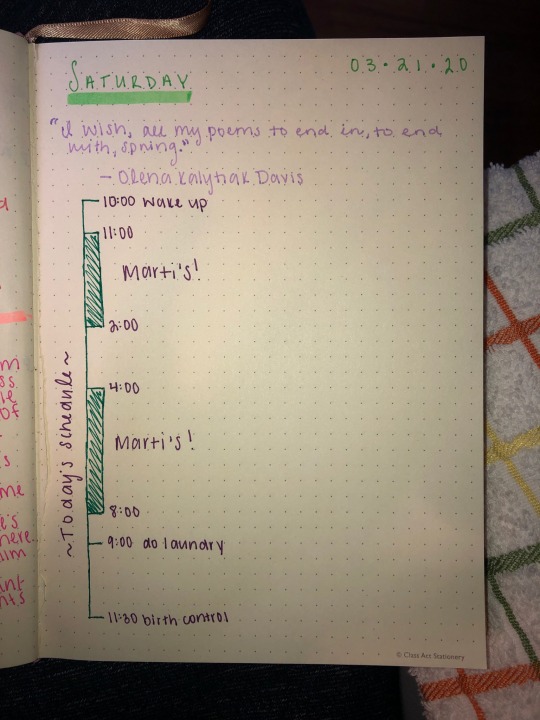 SATURDAY
03 • 21 • 20
"I wish, all my poems to end in, to end
with, spring."
— Olena Kalytiak Davis
10:00 wake up
11:00
Marti's!
2:00
~Today's schedule~
4:00
Marti's!
8:00
9:00 do laundry
11:30 birth control
© Class Act Stationery